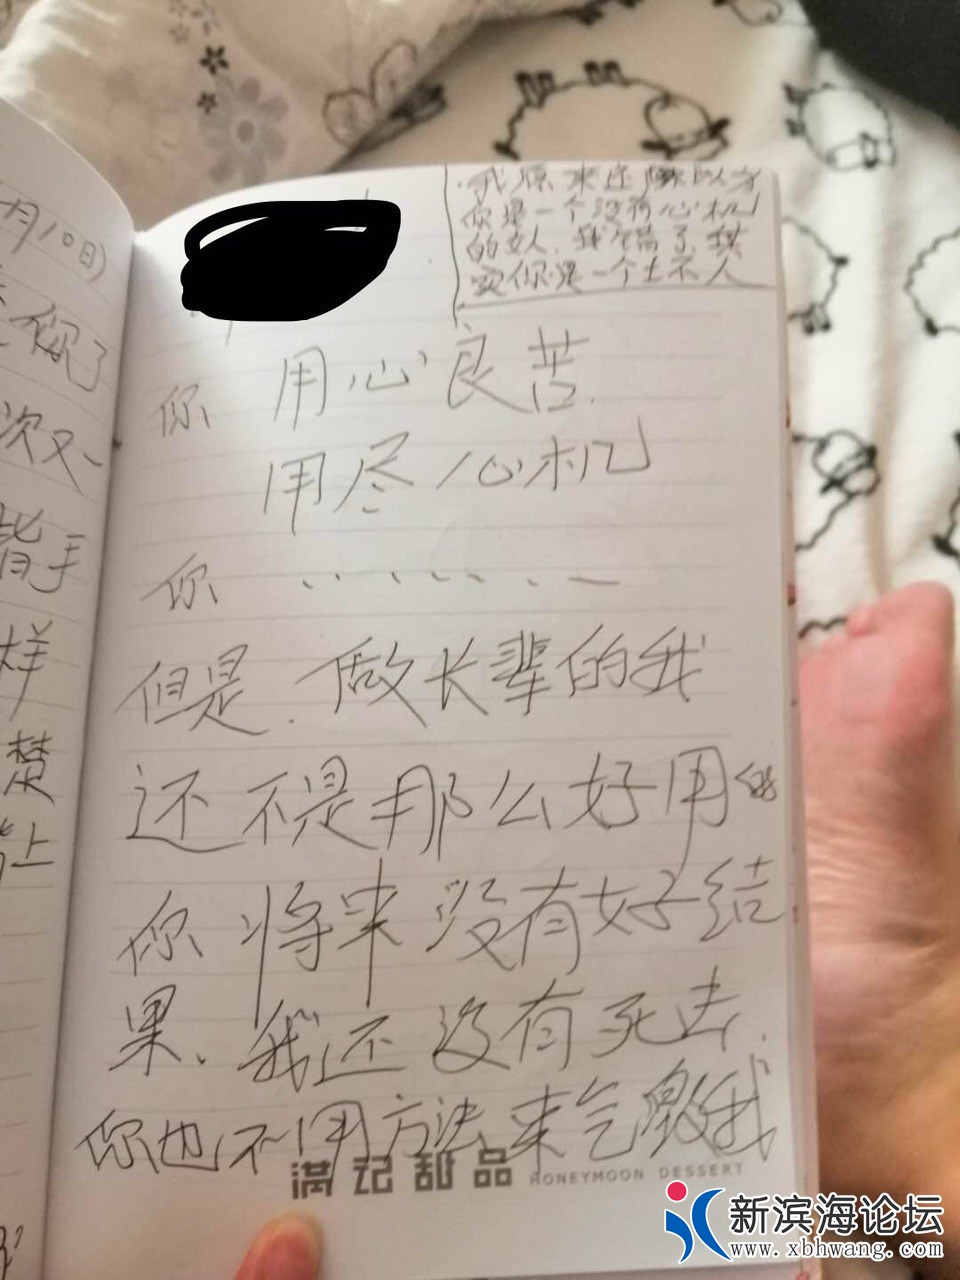 月10日)
你了
次又
背手
样
楚
上
我原来还以为
你是一个没有心机
的女人.我错了.其
实你是一个土不人
你 用心良苦.
用尽心机
你 ......
但是.做长辈的我
还不是那么好用
你将来没有好结
果.我还没有死去.
你也不用方法来气我
满记甜品 HONEYMOON DESSERT
新滨海论坛
www.xbhwang.com